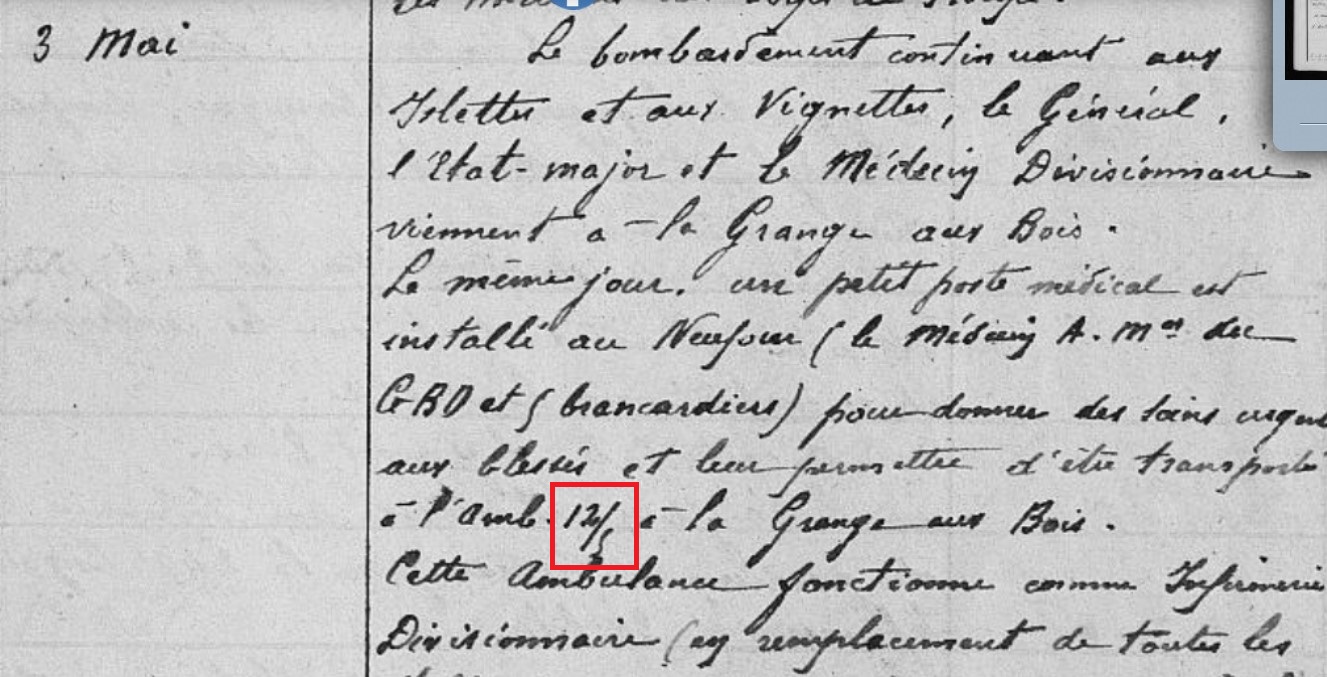 3 Mai
Le bombardement continuant aux
Islettes et aux Vignettes, le Général,
l'Etat-major et le Médecin Divisionnaire
viennent à la Grange aux Bois.
Le même jour, un petit poste médical est
installé au Neufour (le Médecin A. M. du
GBD et 5 brancardiers) pour donner des soins urgent
aux blessés et leur permettre d'être transporté
à l'Amb. 12/5 à la Grange aux Bois.
Cette Ambulance fonctionne comme Infirmerie
Divisionnaire (en remplacement de toutes les